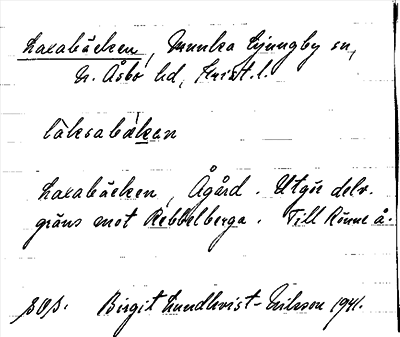 Laxabäcken, Munka Ljungby sn,
N. Åsbo hd, Krist. l.
laksabækan
Laxabäcken, Ågård. Utgör delv.
gräns mot Rebbelberga. Till Rönne å.
Birgit Lundkvist-Eriksson 1941.